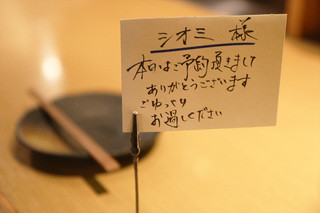 シオミ 様
本日はご予約頂きまして
ありがとうございます
ごゆっくり
お過しください